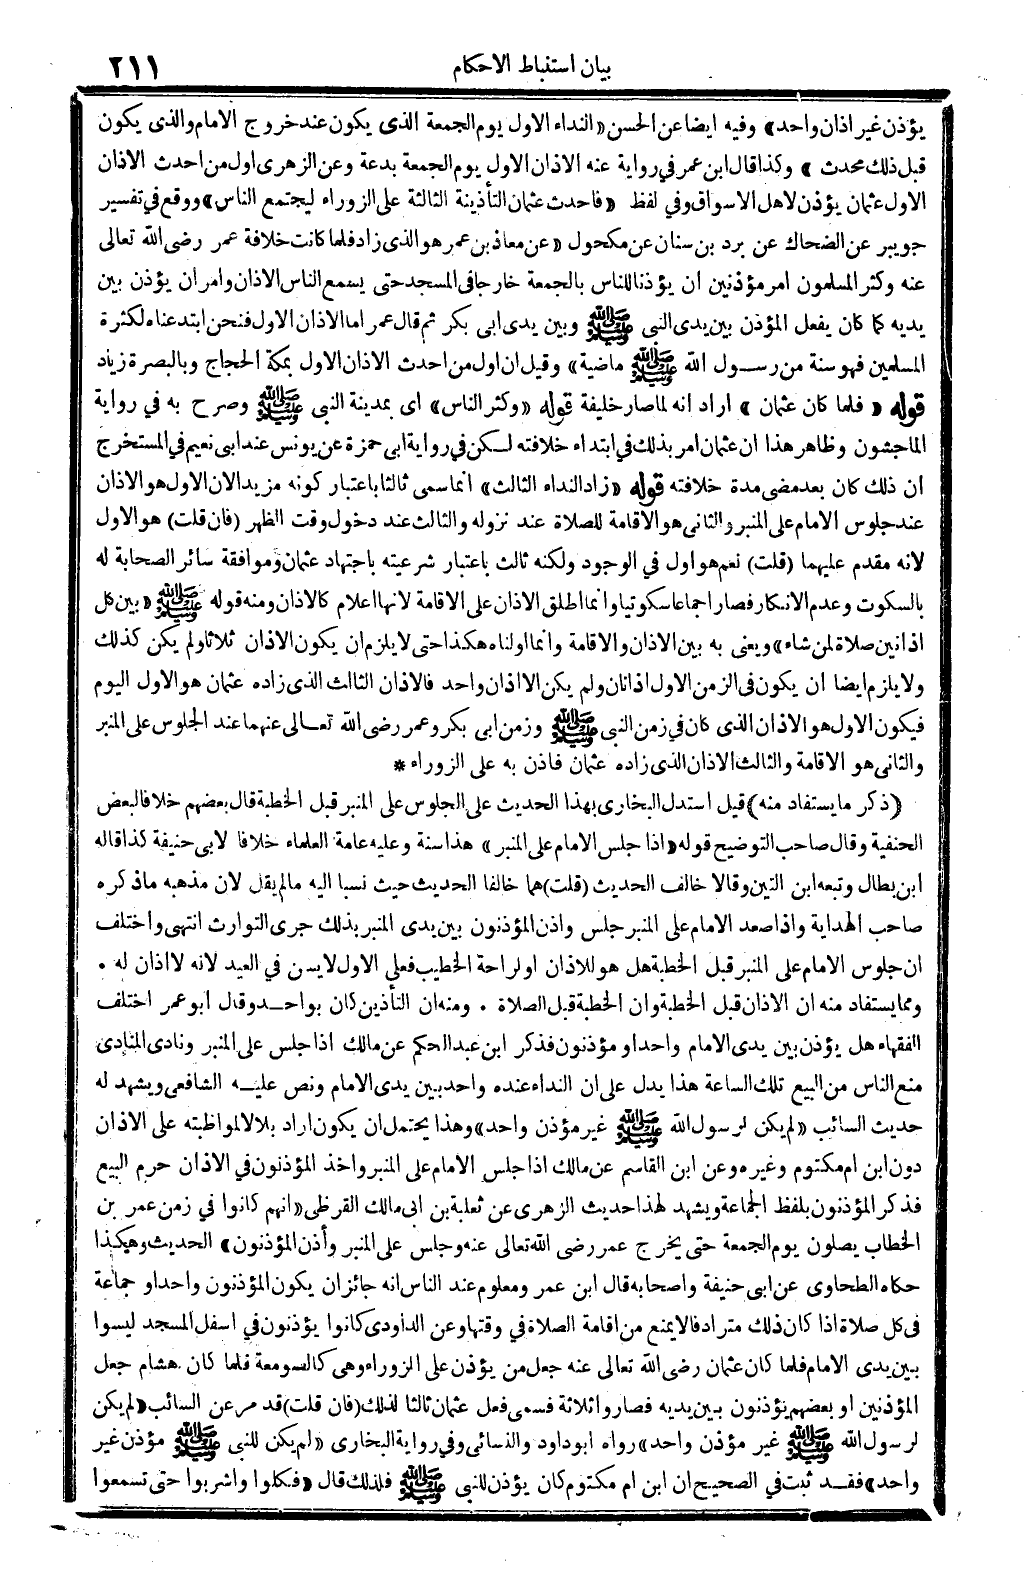 بيان استنباط الاحكام
٢١١
يؤذن غير اذان واحد» وفيه ايضا عن الحسن «النداء الاول يوم الجمعة الذى يكون عند خروج الامام والذى يكون
قبل ذلك محدث» وكذا قال ابن عمر في رواية عنه الاذان الاول يوم الجمعة بدعة وعن الزهرى اول من احدث الاذان
الاول عثمان يؤذن لاهل الاسواق وفي لفظ «فاحدث عثمان التأذينة الثالثة على الزوراء ليجتمع الناس» ووقع في تفسير
جويبر عن الضحاك عن برد بن سنان عن مكحول «عن معاذ بن عمر هو الذى زاد فلما كانت خلافة عمر رضى الله تعالى
عنه وكثر المسلمون امر مؤذنين ان يؤذنا للناس بالجمعة خارجا في المسجد حتى يسمع الناس الاذان وامر ان يؤذن بين
يديه كما كان يفعل المؤذن بين يدى النبى ﷺ وبين يدى ابى بكر ثم قال عمر اما الاذان الاول فنحن ابتدعناه لكثرة
المسلمين فهو سنة من رسول الله ﷺ ماضية» وقيل ان اول من احدث الاذان الاول بمكة الحجاج وبالبصرة زياد
قوله «فلما كان عثمان» اراد انه لما صار خليفة قوله «وكثر الناس» اى بمدينة النبى ﷺ وصرح به في رواية
الماجشون وظاهر هذا ان عثمان امر بذلك في ابتداء خلافته لكن في رواية ابى حمزة عن يونس عند ابى نعيم في المستخرج
ان ذلك كان بعد مضى مدة خلافته قوله «زاد النداء الثالث» انما سمى ثالثا باعتبار كونه مزيد الان الاول هو الاذان
عند جلوس الامام على المنبر والثانى هو الاقامة للصلاة عند نزوله والثالث عند دخول وقت الظهر (فان قلت) هو الاول
لانه مقدم عليهما (قلت) نعم هو اول في الوجود ولكنه ثالث باعتبار شرعيته باجتهاد عثمان وموافقة سائر الصحابة له
بالسكوت وعدم الانكار فصار اجماعا سكوتيا وانما اطلق الاذان على الاقامة لانها اعلام كالاذان ومنه قوله ﷺ «بين كل
اذانين صلاة لمن شاء» ويعنى به بين الاذان والاقامة وانما اولناه هكذا حتى لا يلزم ان يكون الاذان ثلاثا ولم يكن كذلك
ولا يلزم ايضا ان يكون فى الزمن الاول اذانان ولم يكن الا اذان واحد فالاذان الثالث الذى زاده عثمان هو الاول اليوم
فيكون الاول هو الاذان الذى كان في زمن النبى ﷺ وزمن ابى بكر وعمر رضى الله تعالى عنهما عند الجلوس على المنبر
والثانى هو الاقامة والثالث الاذان الذى زاده عثمان فاذن به على الزوراء *
(ذكر ما يستفاد منه) قيل استدل البخارى بهذا الحديث على الجلوس على المنبر قبل الخطبة قال بعضهم خلافا لبعض
الحنفية وقال صاحب التوضيح قوله «اذا جلس الامام على المنبر» هذا سنة وعليه عامة العلماء خلافا لابى حنيفة كذا قاله
ابن بطال وتبعه ابن التين وقالا خالف الحديث (قلت) هما خالفا الحديث حيث نسبا اليه مالم يقل لان مذهبه ماذكره
صاحب الهداية واذا صعد الامام على المنبر جلس واذن المؤذنون بين يدى المنبر بذلك جرى التوارث انتهى واختلف
ان جلوس الامام على المنبر قبل الخطبة هل هو للاذان او لراحة الخطيب فعلى الاول لايسن في العيد لانه لا اذان له .
ومما يستفاد منه ان الاذان قبل الخطبة وان الخطبة قبل الصلاة . ومنه ان التأذين كان بواحد وقال ابو عمر اختلف
الفقهاء هل يؤذن بين يدى الامام واحد او مؤذنون فذكر ابن عبد الحكم عن مالك اذا جلس على المنبر ونادى المنادى
منع الناس من البيع تلك الساعة هذا يدل على ان النداء عنده واحد بين يدى الامام ونص عليه الشافعى ويشهد له
حديث السائب «لم يكن لرسول الله ﷺ غير مؤذن واحد» وهذا يحتمل ان يكون اراد بلالا لمواظبته على الاذان
دون ابن ام مكتوم وغيره وعن ابن القاسم عن مالك اذا جلس الامام على المنبر واخذ المؤذنون في الاذان حرم البيع
فذكر المؤذنون بلفظ الجماعة ويشهد لهذا حديث الزهرى عن ثعلبة بن ابى مالك القرظى «انهم كانوا في زمن عمر بن
الخطاب يصلون يوم الجمعة حتى يخرج عمر رضى الله تعالى عنه وجلس على المنبر وأذن المؤذنون» الحديث وهكذا
حكاه الطحاوى عن ابى حنيفة واصحابه قال ابن عمر ومعلوم عند الناس انه جائز ان يكون المؤذنون واحدا و جماعة
فى كل صلاة اذا كان ذلك مترادفا لا يمنع من اقامة الصلاة في وقتها وعن الداودى كانوا يؤذنون في اسفل المسجد ليسوا
بين يدى الامام فلما كان عثمان رضى الله تعالى عنه جعل من يؤذن على الزوراء وهى كالصومعة فلما كان هشام جعل
المؤذنين او بعضهم يؤذنون بين يديه فصاروا ثلاثة فسمى فعل عثمان ثالثا لذلك (فان قلت) قد مر عن السائب «لم يكن
لرسول الله ﷺ غير مؤذن واحد» رواه ابو داود والنسائى وفي رواية البخارى «لم يكن للنبى ﷺ مؤذن غير
واحد» فقد ثبت في الصحيح ان ابن ام مكتوم كان يؤذن للنبى ﷺ فلذلك قال «فكلوا واشربوا حتى تسمعوا